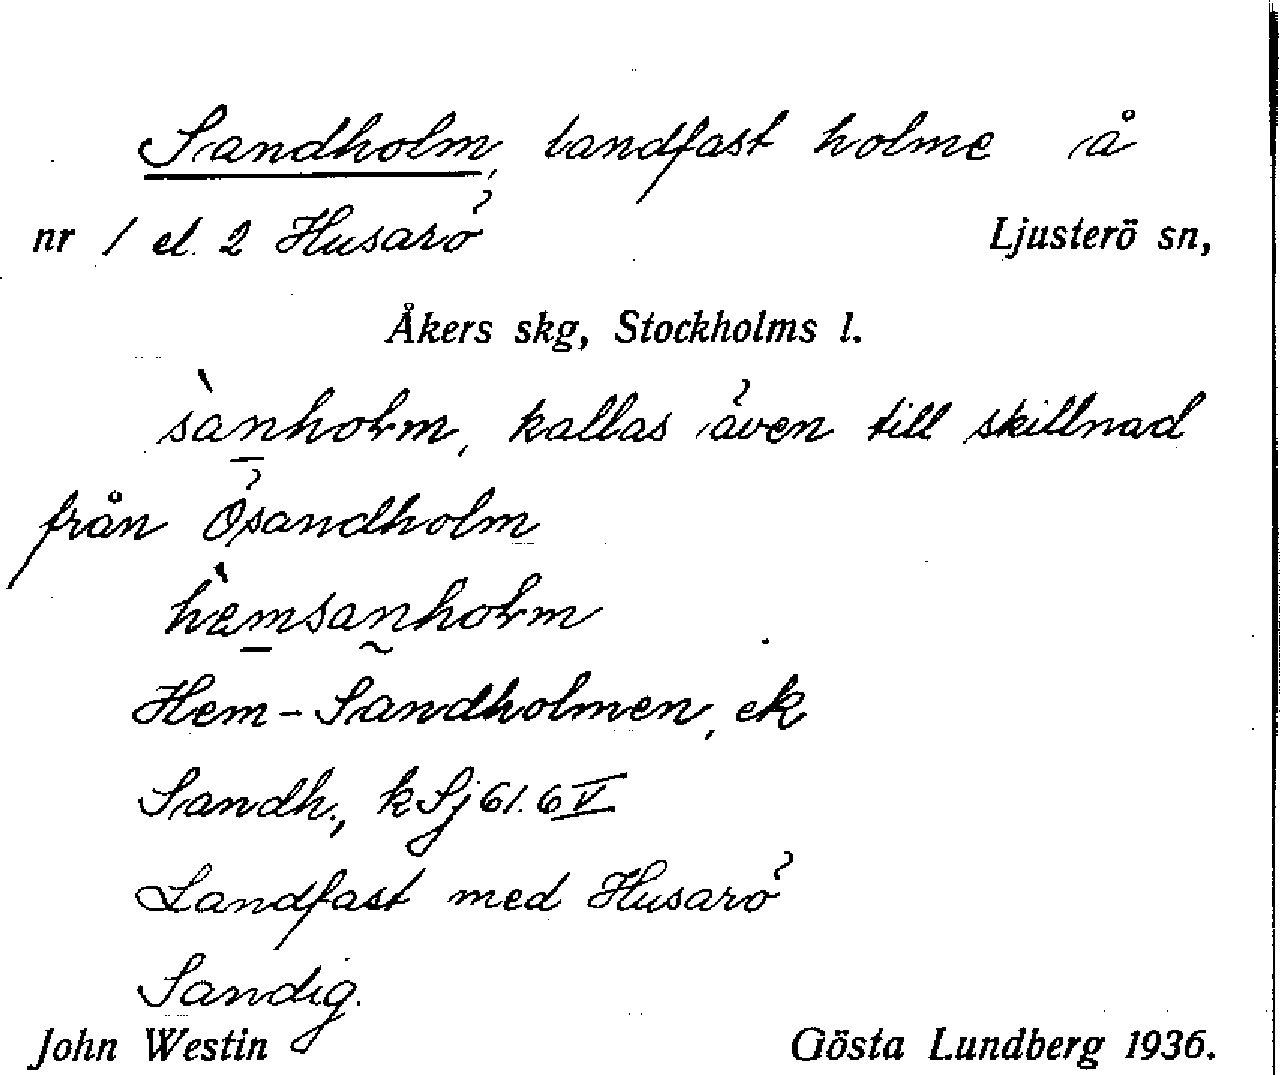 Sandholm, landfast holme å
nr 1 el. 2 Husarö Ljusterö sn,
Åkers skg, Stockholms l.
sànholm, kallas även till skillnad
från Ösandholm
hèmsanholm
Hem-Sandholmen, ek
Sandh., kSj 61.6 V
Landfast med Husarö
Sandig.
John Westin Gösta Lundberg 1936.